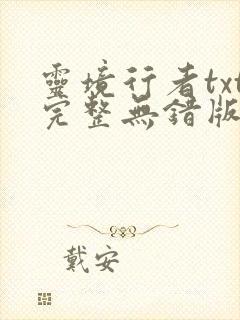 靈境行者txt
完整無錯版
戴安